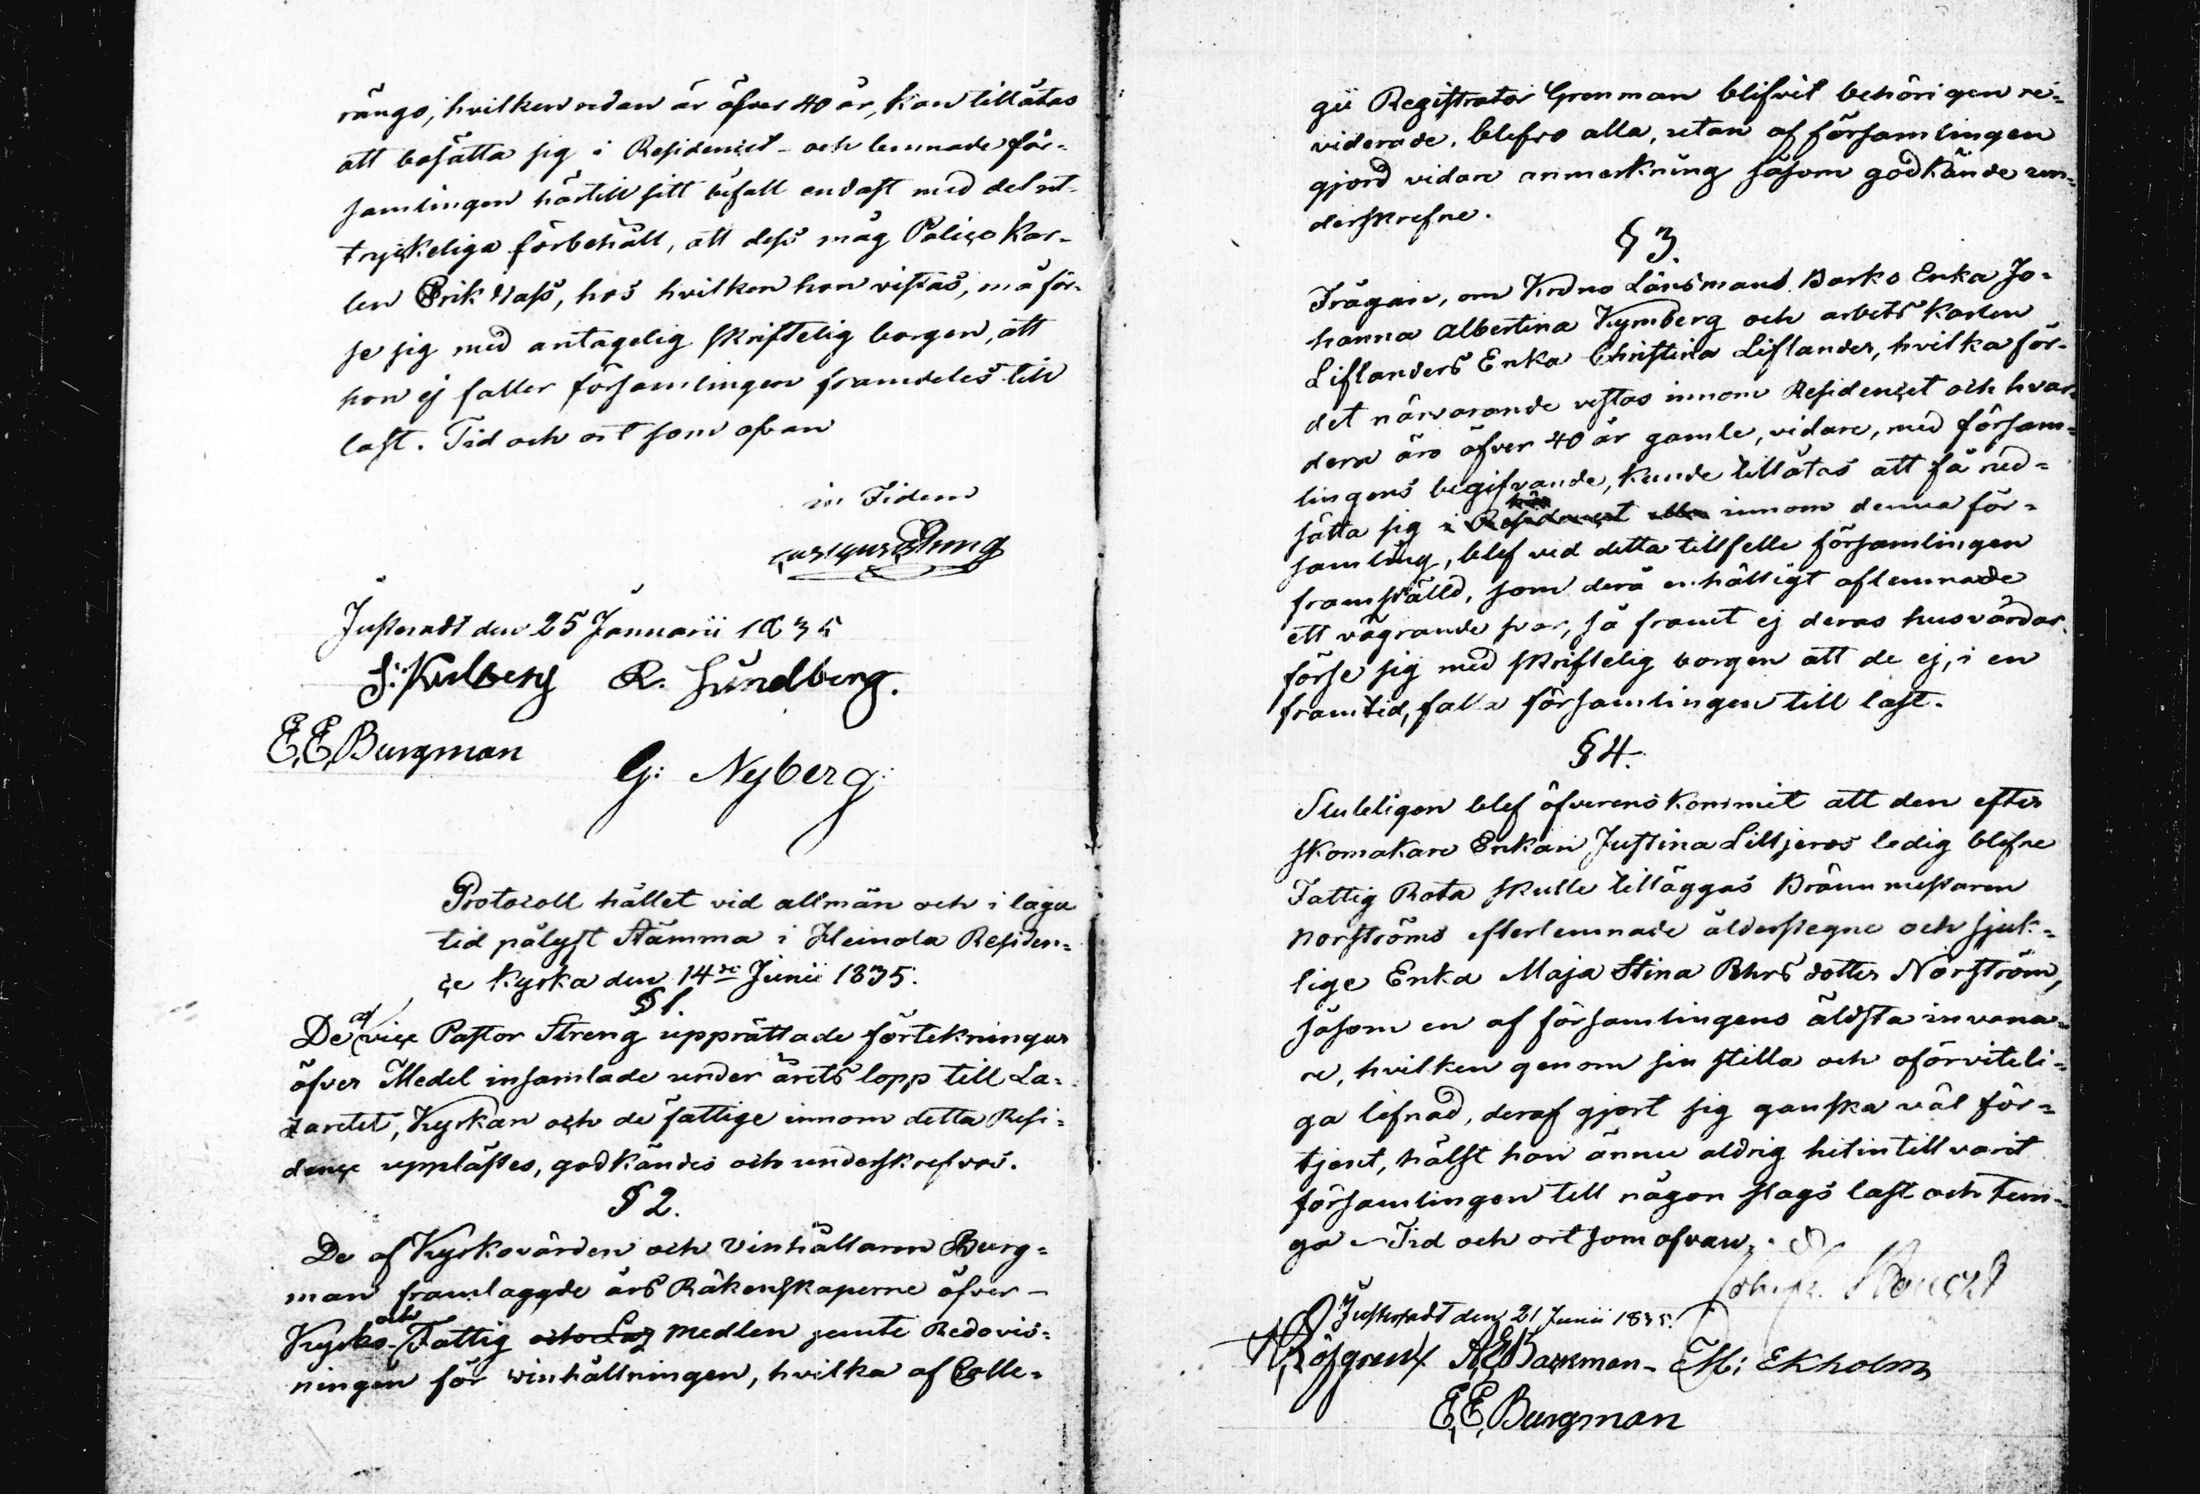 rängs, hvilken redan är öfver 40 år, kan tillåtas
att bosätta sig i Residencet - och lemnade för-
samlingen härtill sitt bifall endast med det ut-
tryckeliga förbehåll, att dess måg Polico Kar-
len Erik Vass, hos hvilken hon vistas, må för-
se sig med antagelig skriftelig borgen, att
hon ej faller församlingen framdeles till
last. Tid och ort som ofvan
in Fidem
Justeradt den 25 Januarii 1835
J: Kulberg R. Sundberg.
E, E, Burgman
G: Nyberg:
Protocoll hållet vid allmän och i laga
tid pålyst Stämma i Heinola Residen-
çe Kyrka den 14de Junii 1835.
§ 1.
De af viçe Pastor Streng upprättade förtekningar
öfver Medel insamlade under årets lopp till La-
zaretet, Kyrkan och de fattige innom detta Resi-
dençe upplästes, godkändes och underskrefvos.
§ 2.
De af Kyrkovärden och Vinhållaren Burg-
man framlaggde års Räkenskaperne öfver -
Kyrko- och Fattig medlen jemte Redovis-
ningen för vinhållningen, hvilka af Colle-
gii Registrator Grenman blifvit behörigen re-
viderade, blefvo alla, utan af församlingen
gjord vidare anmerkning såsom godkände un-
derskrefne.
§ 3.
Frågan, om Krono Länsmans Enka Jo-
hanna Albertina Kymberg och arbets Karlen
Liflanders Enka Christina Liflander, hvilka för
det närvarande vistas innom Residencet och hvar-
dera äro öfver 40 år gamle, vidare, med försam-
lingens begifvande, kunde tillåtas att få ned-
sätta sig i Residencet eller innom denna för-
samling, blef vid detta tillfelle församlingen
framställd, som derå enhälligt aflemnade
ett vägrande svar, så framt ej deras husvärdar
förse sig med skriftelig borgen att de ej, i en
framtid, falla församlingen till last.
§ 4.
Sluteligen blef öfverenskommit att den efter
skomakare Enkan Justina Liljeros ledig blefne
Fattig Rota skulle tilläggas Brännmestaren
Norströms efterlemnade ålderstegne och sjuk-
lige Enka Maja Stina Dotter Norström,
såsom en af församlingens äldsta invona-
re, hvilken genom sin stilla och oförviteli-
ga lefnad, deraf gjort sig ganska väl för-
tjent, hälst hon ännu aldrig hitintill varit
församlingen till någon slags last och tun-
ga - Tid och ort som ofvan.
Justeradt den 21 Junii 1835.
Löfgren A, E, Backman - Ekholm
E, E, Burgman